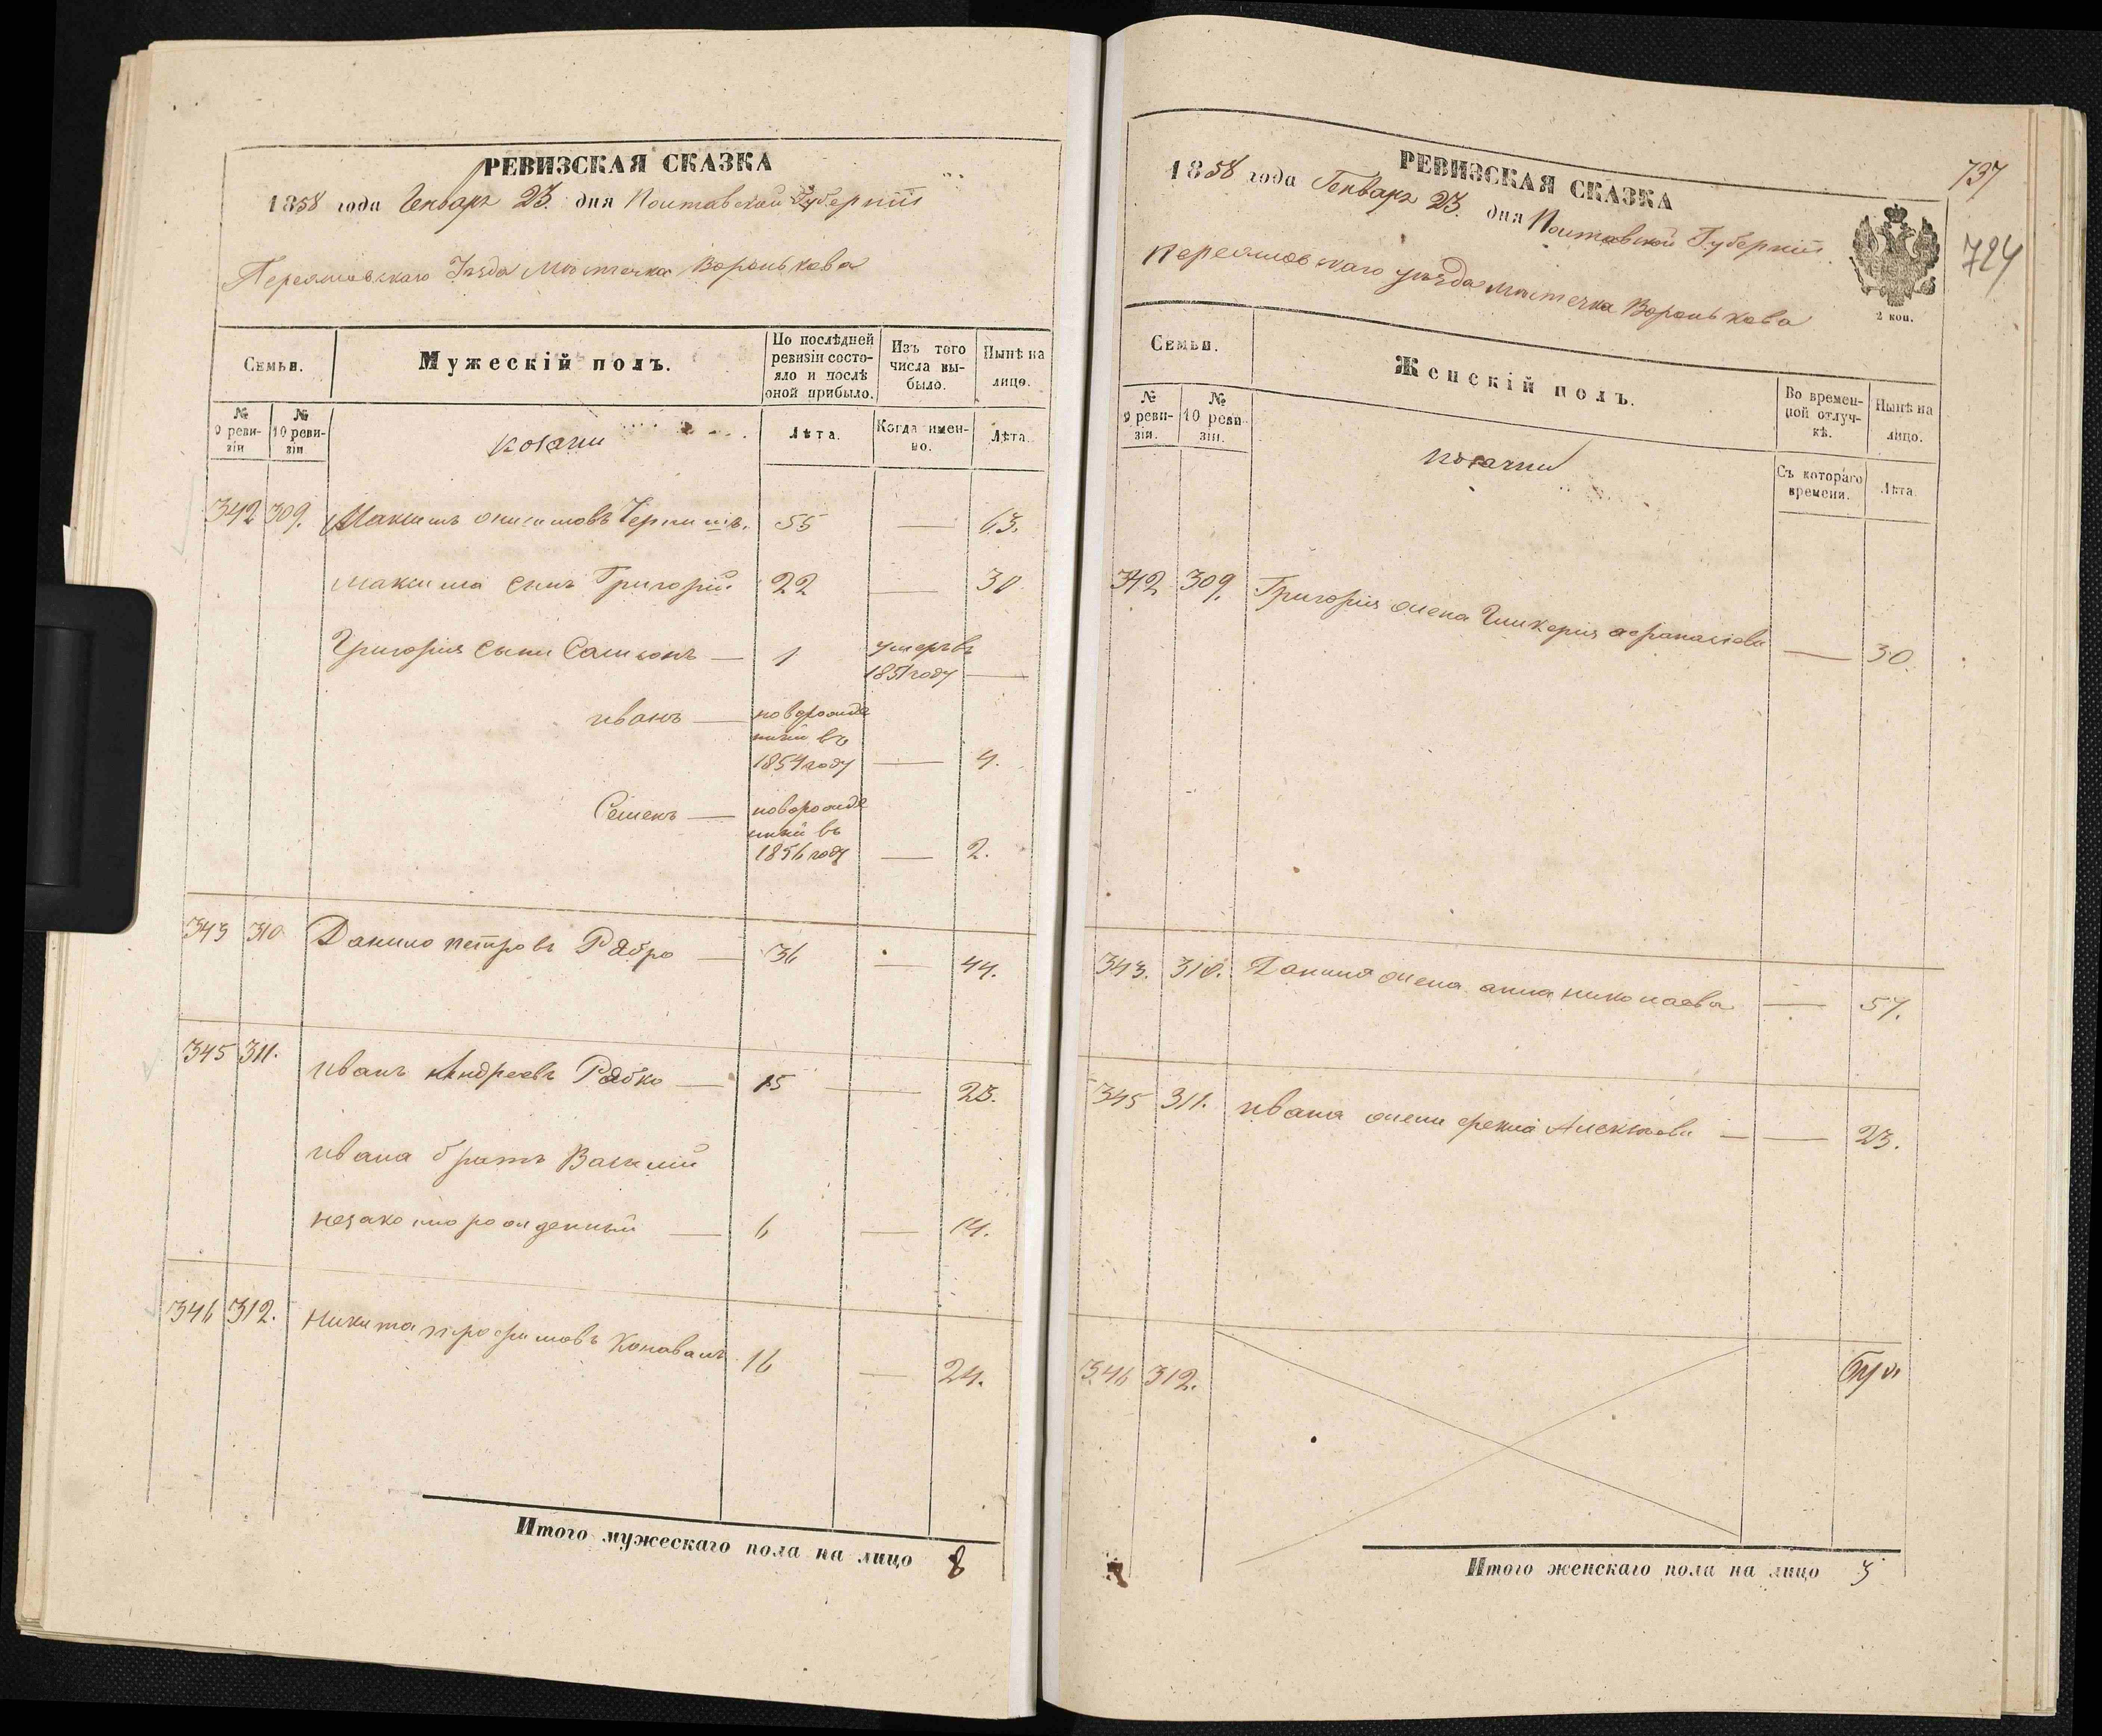 РЕВИЗСКАЯ СКАЗКА
1858 года Генваря 23. дня Полтавской Губерніи
Переяславскаго Уѣзда Мѣстечка Воронькова
Семьи.
Мужескій полъ.
По послѣдней ревизіи состояло и послѣ оной прибыло.
Изъ того числа выбыло.
Нынѣ на лицо.
№ 9 ревизіи
№ 10 ревизіи
козаки
Лѣта.
Когда именно.
Лѣта.
342 309. Максимъ онисимовъ 55 — 63.
Максима сынъ Григорій 22 — 30
Григорія сыны Самсонъ — 1 умеръ въ
1851 году —
иванъ — новорожде
нный въ
1854 году — 4.
Семенъ — новорожде
нный въ
1856 году — 2.
343 310 Данило петровъ Рябро — 36 — 44.
345 311. иванъ Андреевъ Рябко — 15 — 23.
ивана братъ Василий
незаконорожденный — 6 — 14.
346 312. Никита трофимовъ Коновалъ 16 — 24.
Итого мужескаго пола на лицо 8
737
724
РЕВИЗСКАЯ СКАЗКА
1858 года Генваря 23. дня Полтавской Губерніи.
Переяславскаго уѣзда Мѣстечка Воронькова
2 коп.
Семьи.
Женскій полъ.
Во временной отлучкѣ.
Нынѣ на лицо.
№ 9 ревизіи.
№ 10 ревизіи.
козачки
Съ котораго времени.
Лѣта.
342 309. Григорія жена Гликерія афанасіева — 30
343. 310. Данила жена анна николаева — 57.
345 311. ивана жена фекла Алексѣева — — 23.
346 312.
Итого женскаго пола на лицо 3